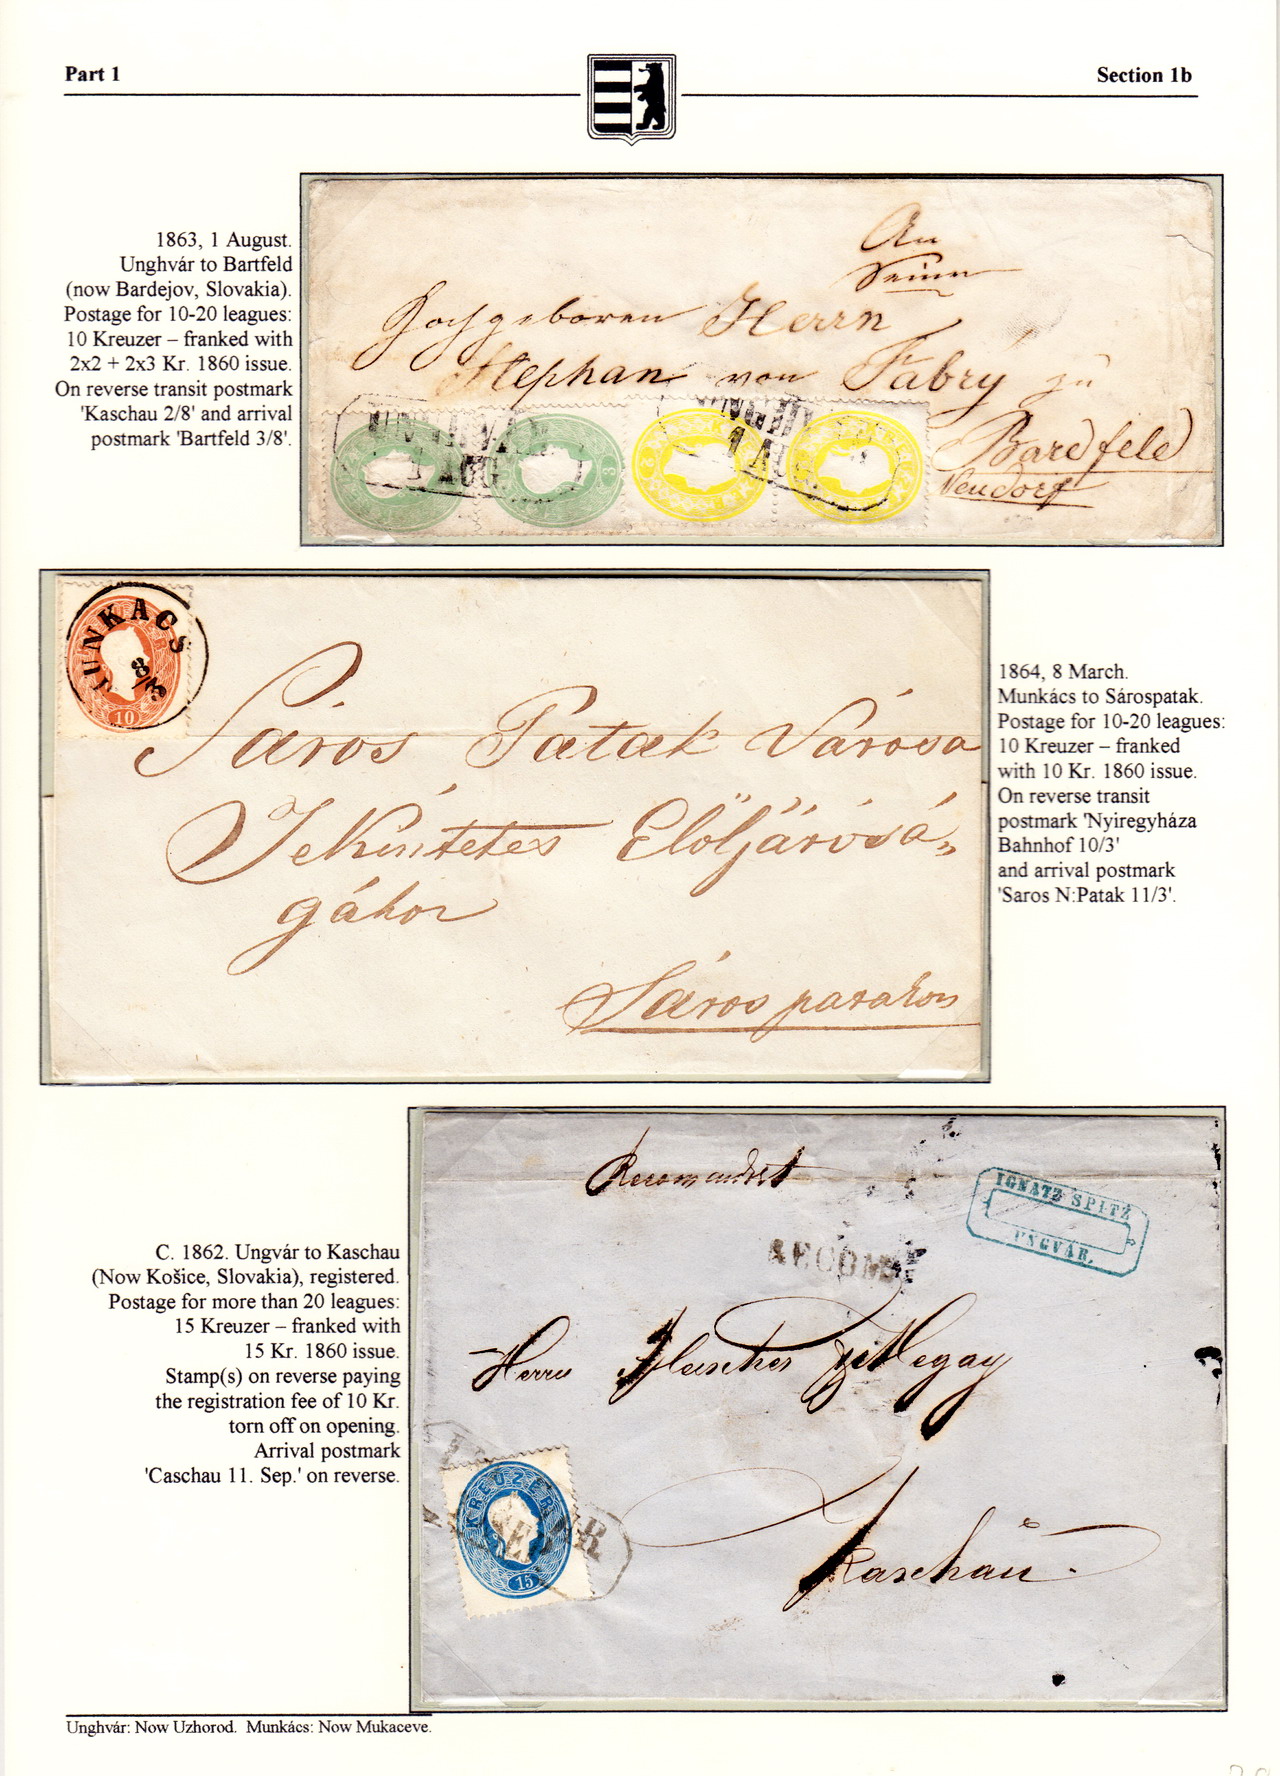 Part 1
Section 1b
1863, 1 August.
Unghvár to Bartfeld
(now Bardejov, Slovakia).
Postage for 10-20 leagues:
10 Kreuzer – franked with
2x2 + 2x3 Kr. 1860 issue.
On reverse transit postmark
'Kaschau 2/8' and arrival
postmark 'Bartfeld 3/8'.
An
Seine
Hochgeboren Herrn
Stephan von Fabry zu
Bardfeld
Neudorf
UNGHVÁR
1 AUG
1 AUG
MUNKACS
8/3
10
Sáros Patak Városa
Tekintetes Elöljárósá-
gához
Sáros patakon
1864, 8 March.
Munkács to Sárospatak.
Postage for 10-20 leagues:
10 Kreuzer – franked
with 10 Kr. 1860 issue.
On reverse transit
postmark 'Nyiregyháza
Bahnhof 10/3'
and arrival postmark
'Saros N:Patak 11/3'.
Recomandirt
IGNATZ SPITZ
UNGVÁR.
RECOM
Herrn Fleischer
Kaschau.
KREUZER
15
C. 1862. Ungvár to Kaschau
(Now Košice, Slovakia), registered.
Postage for more than 20 leagues:
15 Kreuzer – franked with
15 Kr. 1860 issue.
Stamp(s) on reverse paying
the registration fee of 10 Kr.
torn off on opening.
Arrival postmark
'Caschau 11. Sep.' on reverse.
Unghvár: Now Uzhorod. Munkács: Now Mukaceve.